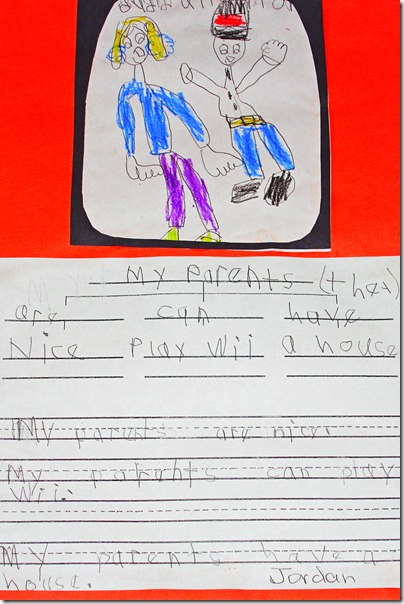 My parents (thet)
are, can have
Nice Play Wii a house
My parents are nice.
My parents can play
Wii.
My parents have a
house.
Jordan